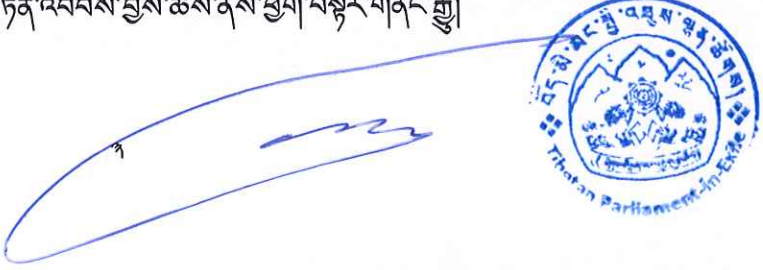 ཏན་འབེབས་བྱས་ཆོས་ནས་ཕྱག་བསྟར་གནང་རྒྱུ།
བོད་མི་མང་སྤྱི་འཐུས་ལྷན་ཚོགས།
Tibetan Parliament-in-Exile